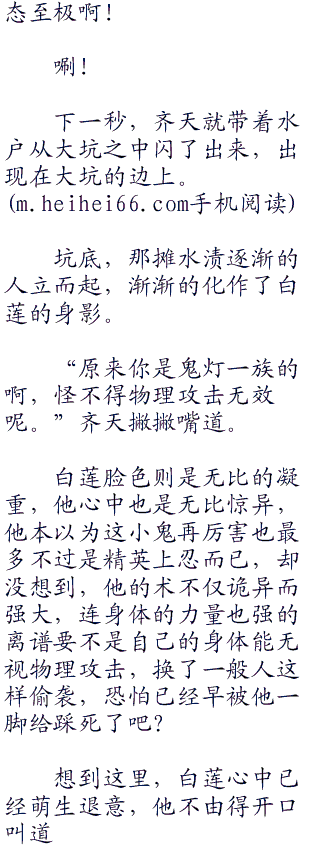 态至极啊！
唰！
下一秒，齐天就带着水
户从大坑之中闪了出来，出
现在大坑的边上。
(m.heihei66.com手机阅读)
坑底，那摊水渍逐渐的
人立而起，渐渐的化作了白
莲的身影。
“原来你是鬼灯一族的
啊，怪不得物理攻击无效
呢。”齐天撇撇嘴道。
白莲脸色则是无比的凝
重，他心中也是无比惊异，
他本以为这小鬼再厉害也最
多不过是精英上忍而已，却
没想到，他的术不仅诡异而
强大，连身体的力量也强的
离谱要不是自己的身体能无
视物理攻击，换了一般人这
样偷袭，恐怕已经早被他一
脚给踩死了吧？
想到这里，白莲心中已
经萌生退意，他不由得开口
叫道